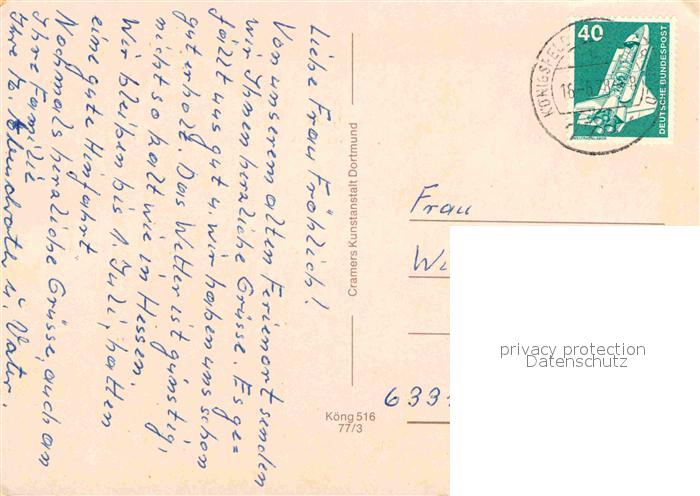 Liebe Frau Fröhlich!
Von unserem alten Ferienort senden
wir Ihnen herzliche Grüsse. Es ge=
fällt uns gut u. wir haben uns schon
gut erholt. Das Wetter ist günstig,
nicht so kalt wie in Hessen.
Wir bleiben bis 1. Juli, hatten
eine gute Hinfahrt
Nochmals herzliche Grüsse, auch an
Ihre Familie
Ihre u. Vater.
Cramers Kunstanstalt Dortmund
Köng 516
77/3
40
DEUTSCHE BUNDESPOST
KÖNIGSFELD
Frau
Wi
633
privacy protection
Datenschutz